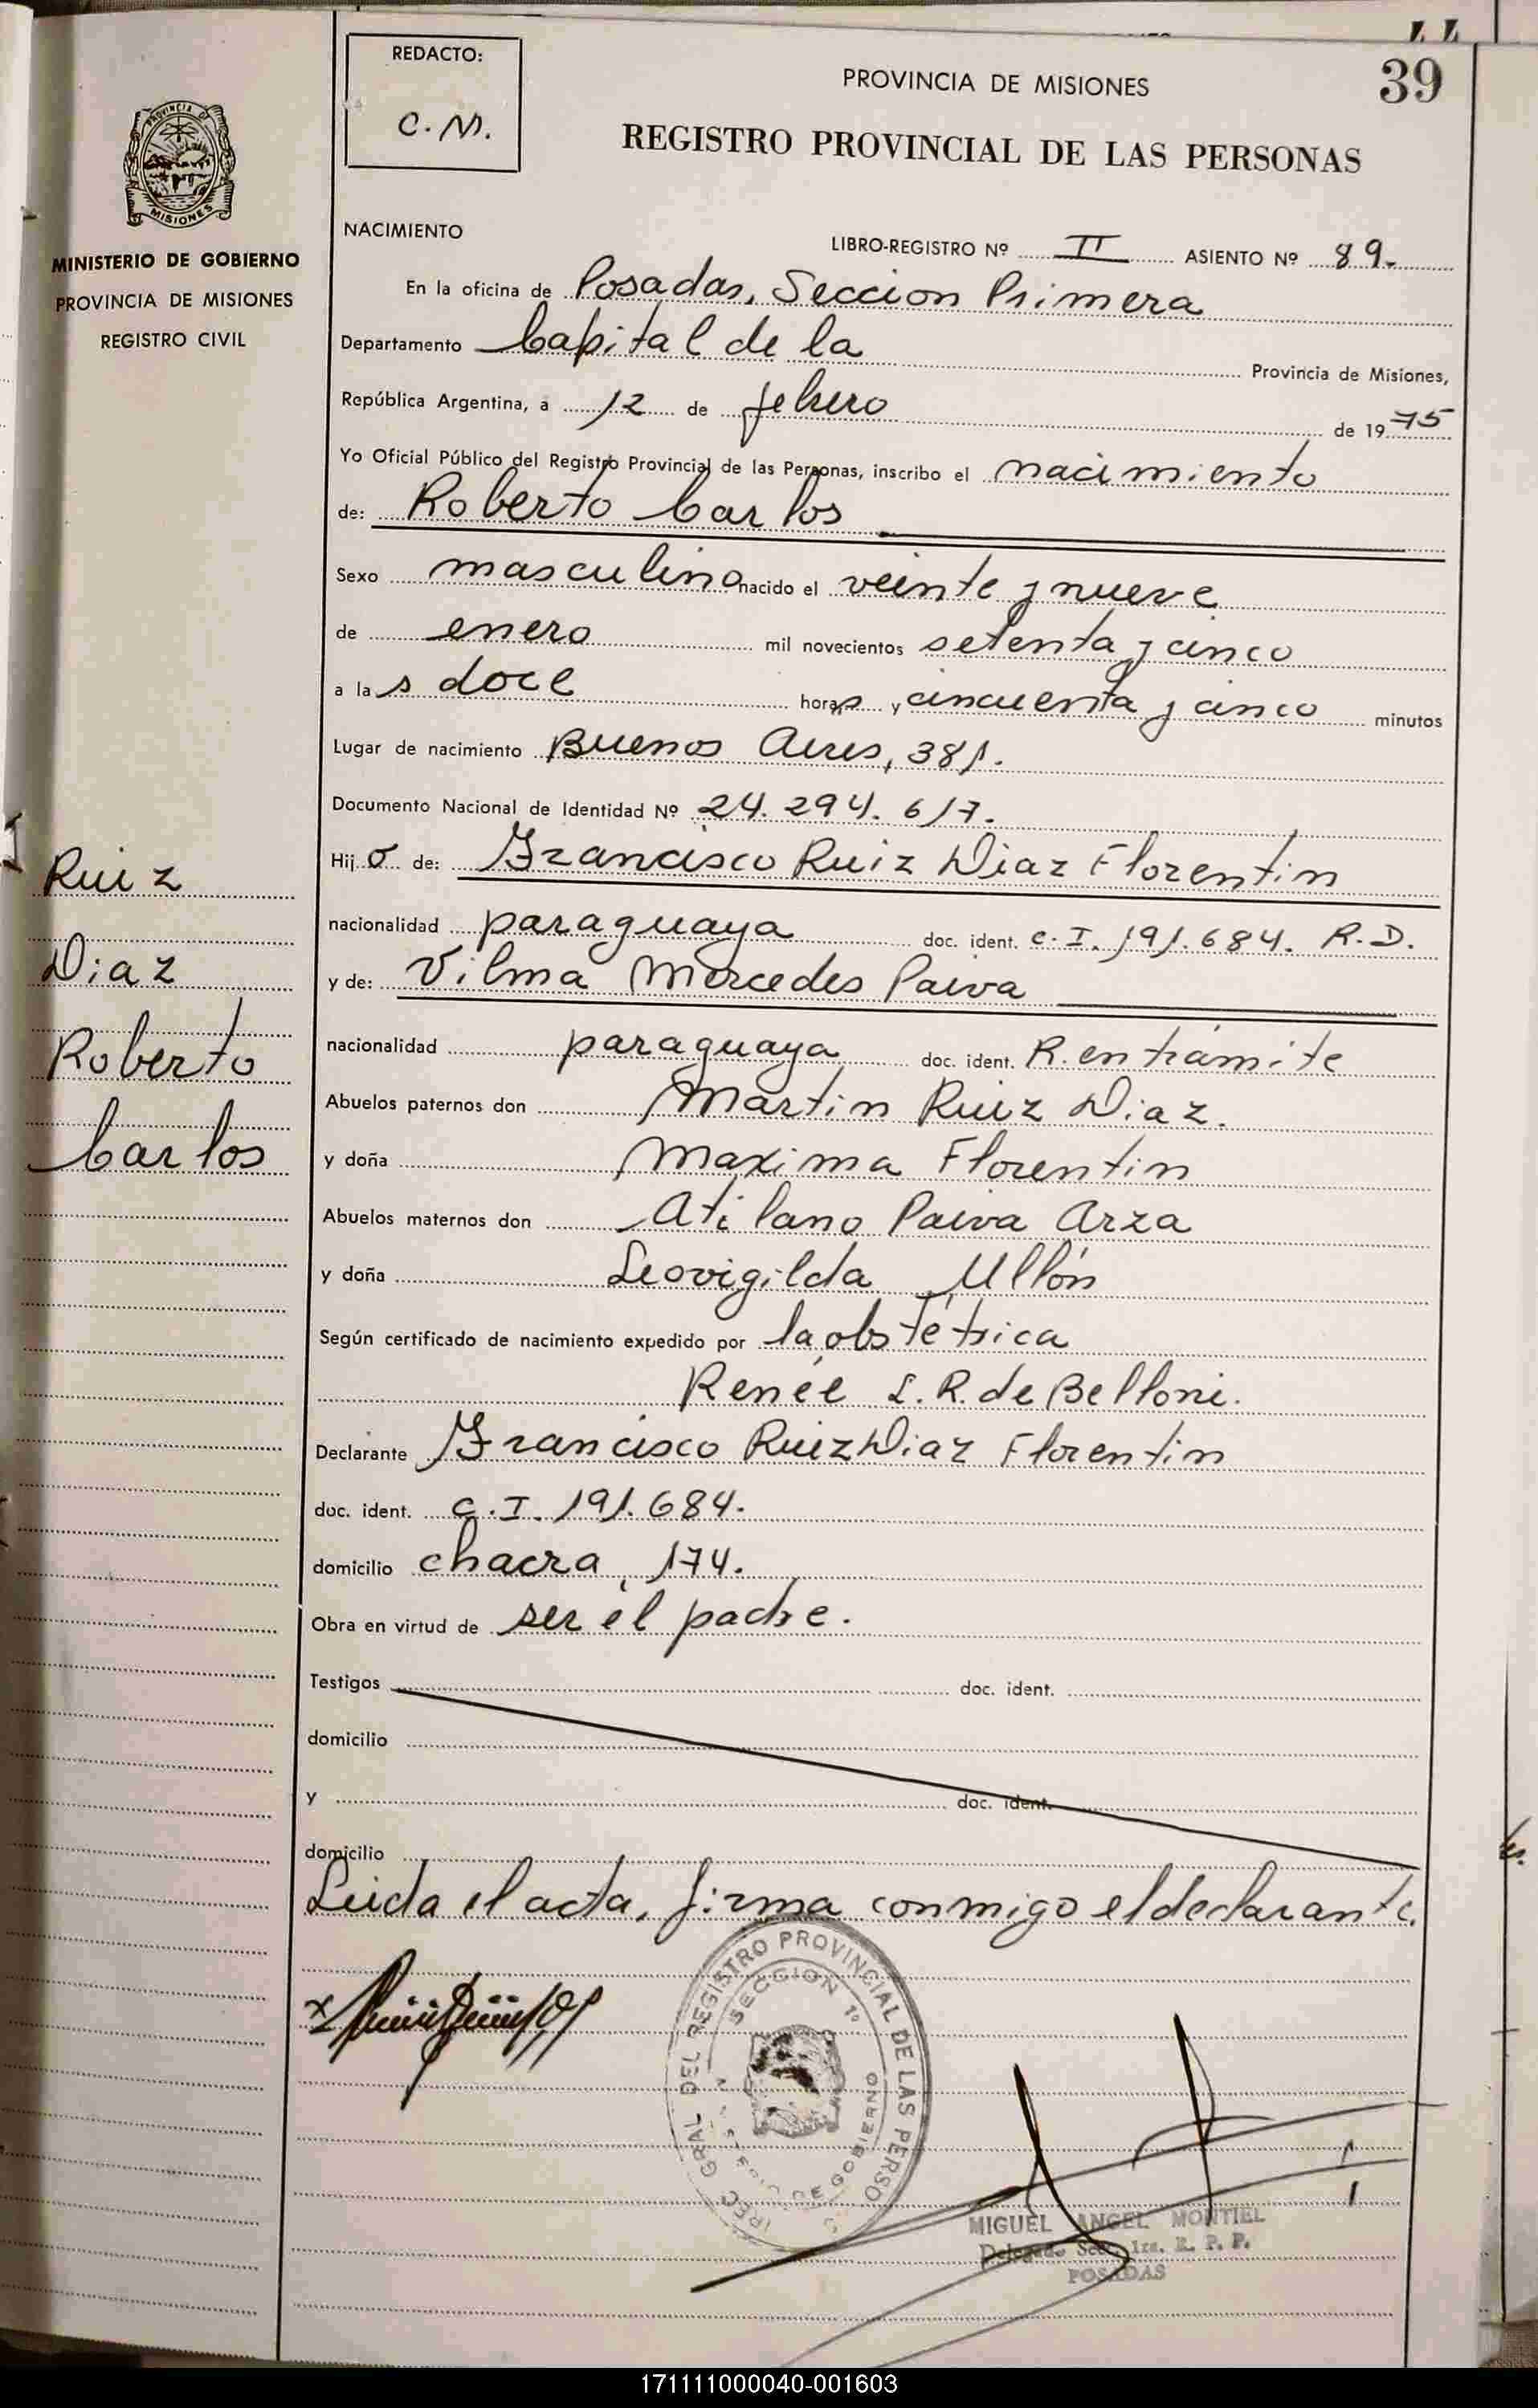 REDACTO:
C.M.
39
PROVINCIA DE MISIONES
REGISTRO PROVINCIAL DE LAS PERSONAS
PROVINCIA DE
MISIONES
MINISTERIO DE GOBIERNO
PROVINCIA DE MISIONES
REGISTRO CIVIL
NACIMIENTO
LIBRO-REGISTRO Nº II ASIENTO Nº 89.
En la oficina de Posadas, Seccion Primera
Departamento Capital de la Provincia de Misiones,
República Argentina, a 12 de febrero de 1975
Yo Oficial Público del Registro Provincial de las Personas, inscribo el nacimiento
de: Roberto Carlos
Sexo masculino nacido el veinte y nueve
de enero mil novecientos setenta y cinco
a las doce horas y cincuenta y cinco minutos
Lugar de nacimiento Buenos Aires, 381.
Documento Nacional de Identidad Nº 24.294.617.
Hijo de: Francisco Ruiz Diaz Florentin
nacionalidad paraguaya doc. ident. C.I. 191.684. R.D.
y de: Vilma Mercedes Paiva
nacionalidad paraguaya doc. ident. R. en trámite
Abuelos paternos don Martin Ruiz Diaz.
y doña Maxima Florentin
Abuelos maternos don Atilano Paiva Arza
y doña Leovigilda Ullón
Según certificado de nacimiento expedido por la obstétrica
Renée L. R. de Belloni.
Declarante Francisco Ruiz Diaz Florentin
doc. ident. C.I. 191.684.
domicilio chacra, 174.
Obra en virtud de ser el padre.
Testigos doc. ident.
domicilio
y doc. ident.
domicilio
Leida el acta, firma conmigo el declarante.
Ruiz
Diaz
Roberto
Carlos
GRAL DEL REGISTRO PROVINCIAL DE LAS PERSO
SECCION 1º
DE GOBIERNO
MIGUEL ANGEL MONTIEL
Delegado Sec. 1ra. R. P. P.
POSADAS
171111000040-001603